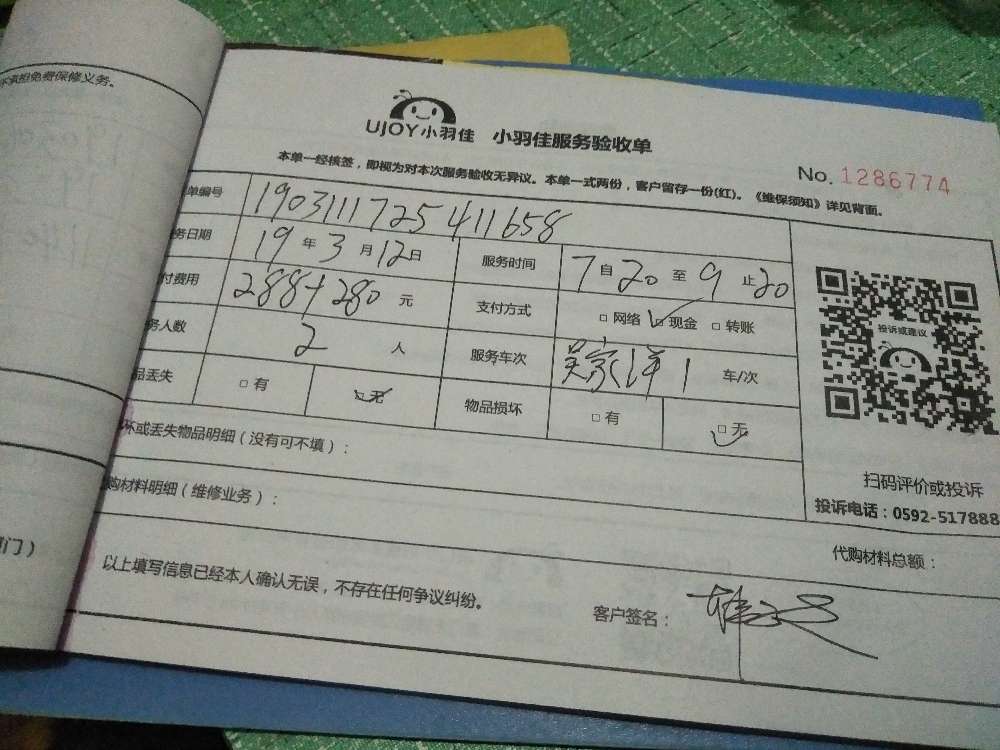 不承担免费保修义务。
UJOY小羽佳 小羽佳服务验收单
No. 1286774
本单一经核签，即视为对本次服务验收无异议。本单一式两份，客户留存一份(红)。《维保须知》详见背面。
单编号 1903111725411658
务日期 19 年 3 月 12 日 服务时间 7 自 20 至 9 止 20
付费用 288+280 元 支付方式 □ 网络 □ 现金 □ 转账
务人数 2 人 服务车次 吴家洋 1 车/次
品丢失 □ 有 □ 无 物品损坏 □ 有 □ 无
坏或丢失物品明细（没有可不填）：
购材料明细（维修业务）：
投诉或建议
扫码评价或投诉
投诉电话：0592-517888
代购材料总额：
门）
以上填写信息已经本人确认无误，不存在任何争议纠纷。
客户签名：